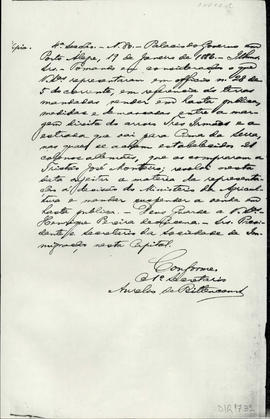 Cópia. 4ª Secção. - N. 80. - Palacio do Governo em
Porto Alegre, 17 de Janeiro de 1886. - Illmos.
Snrs. - Tomando em consideração o que
V. Sas. representaram em officio n. 28 de
5 do corrente, em referencia ás terras
mandadas vender em hasta publica,
medidas e demarcadas entre a mar-
gem direita do arroio Tres Irmãos e a
estrada que vai para Cima da Serra,
nas quaes se acham estabelecidos 21
colonos allemães, que as compraram a
Tristão José Monteiro, resolvi nesta
data sujeitar a materia da represen-
tação á decisão do Ministerio da Agricul-
tura e mandar suspender a venda em
hasta publica. - Deus Guarde a V. Sas.
Henrique Pereira de Lucena. - Snrs. Presi-
dente e Secretario da Sociedade de Im-
migração nesta Capital.
Conforme.
O 1º Secretario
Aurelio de Bittencourt